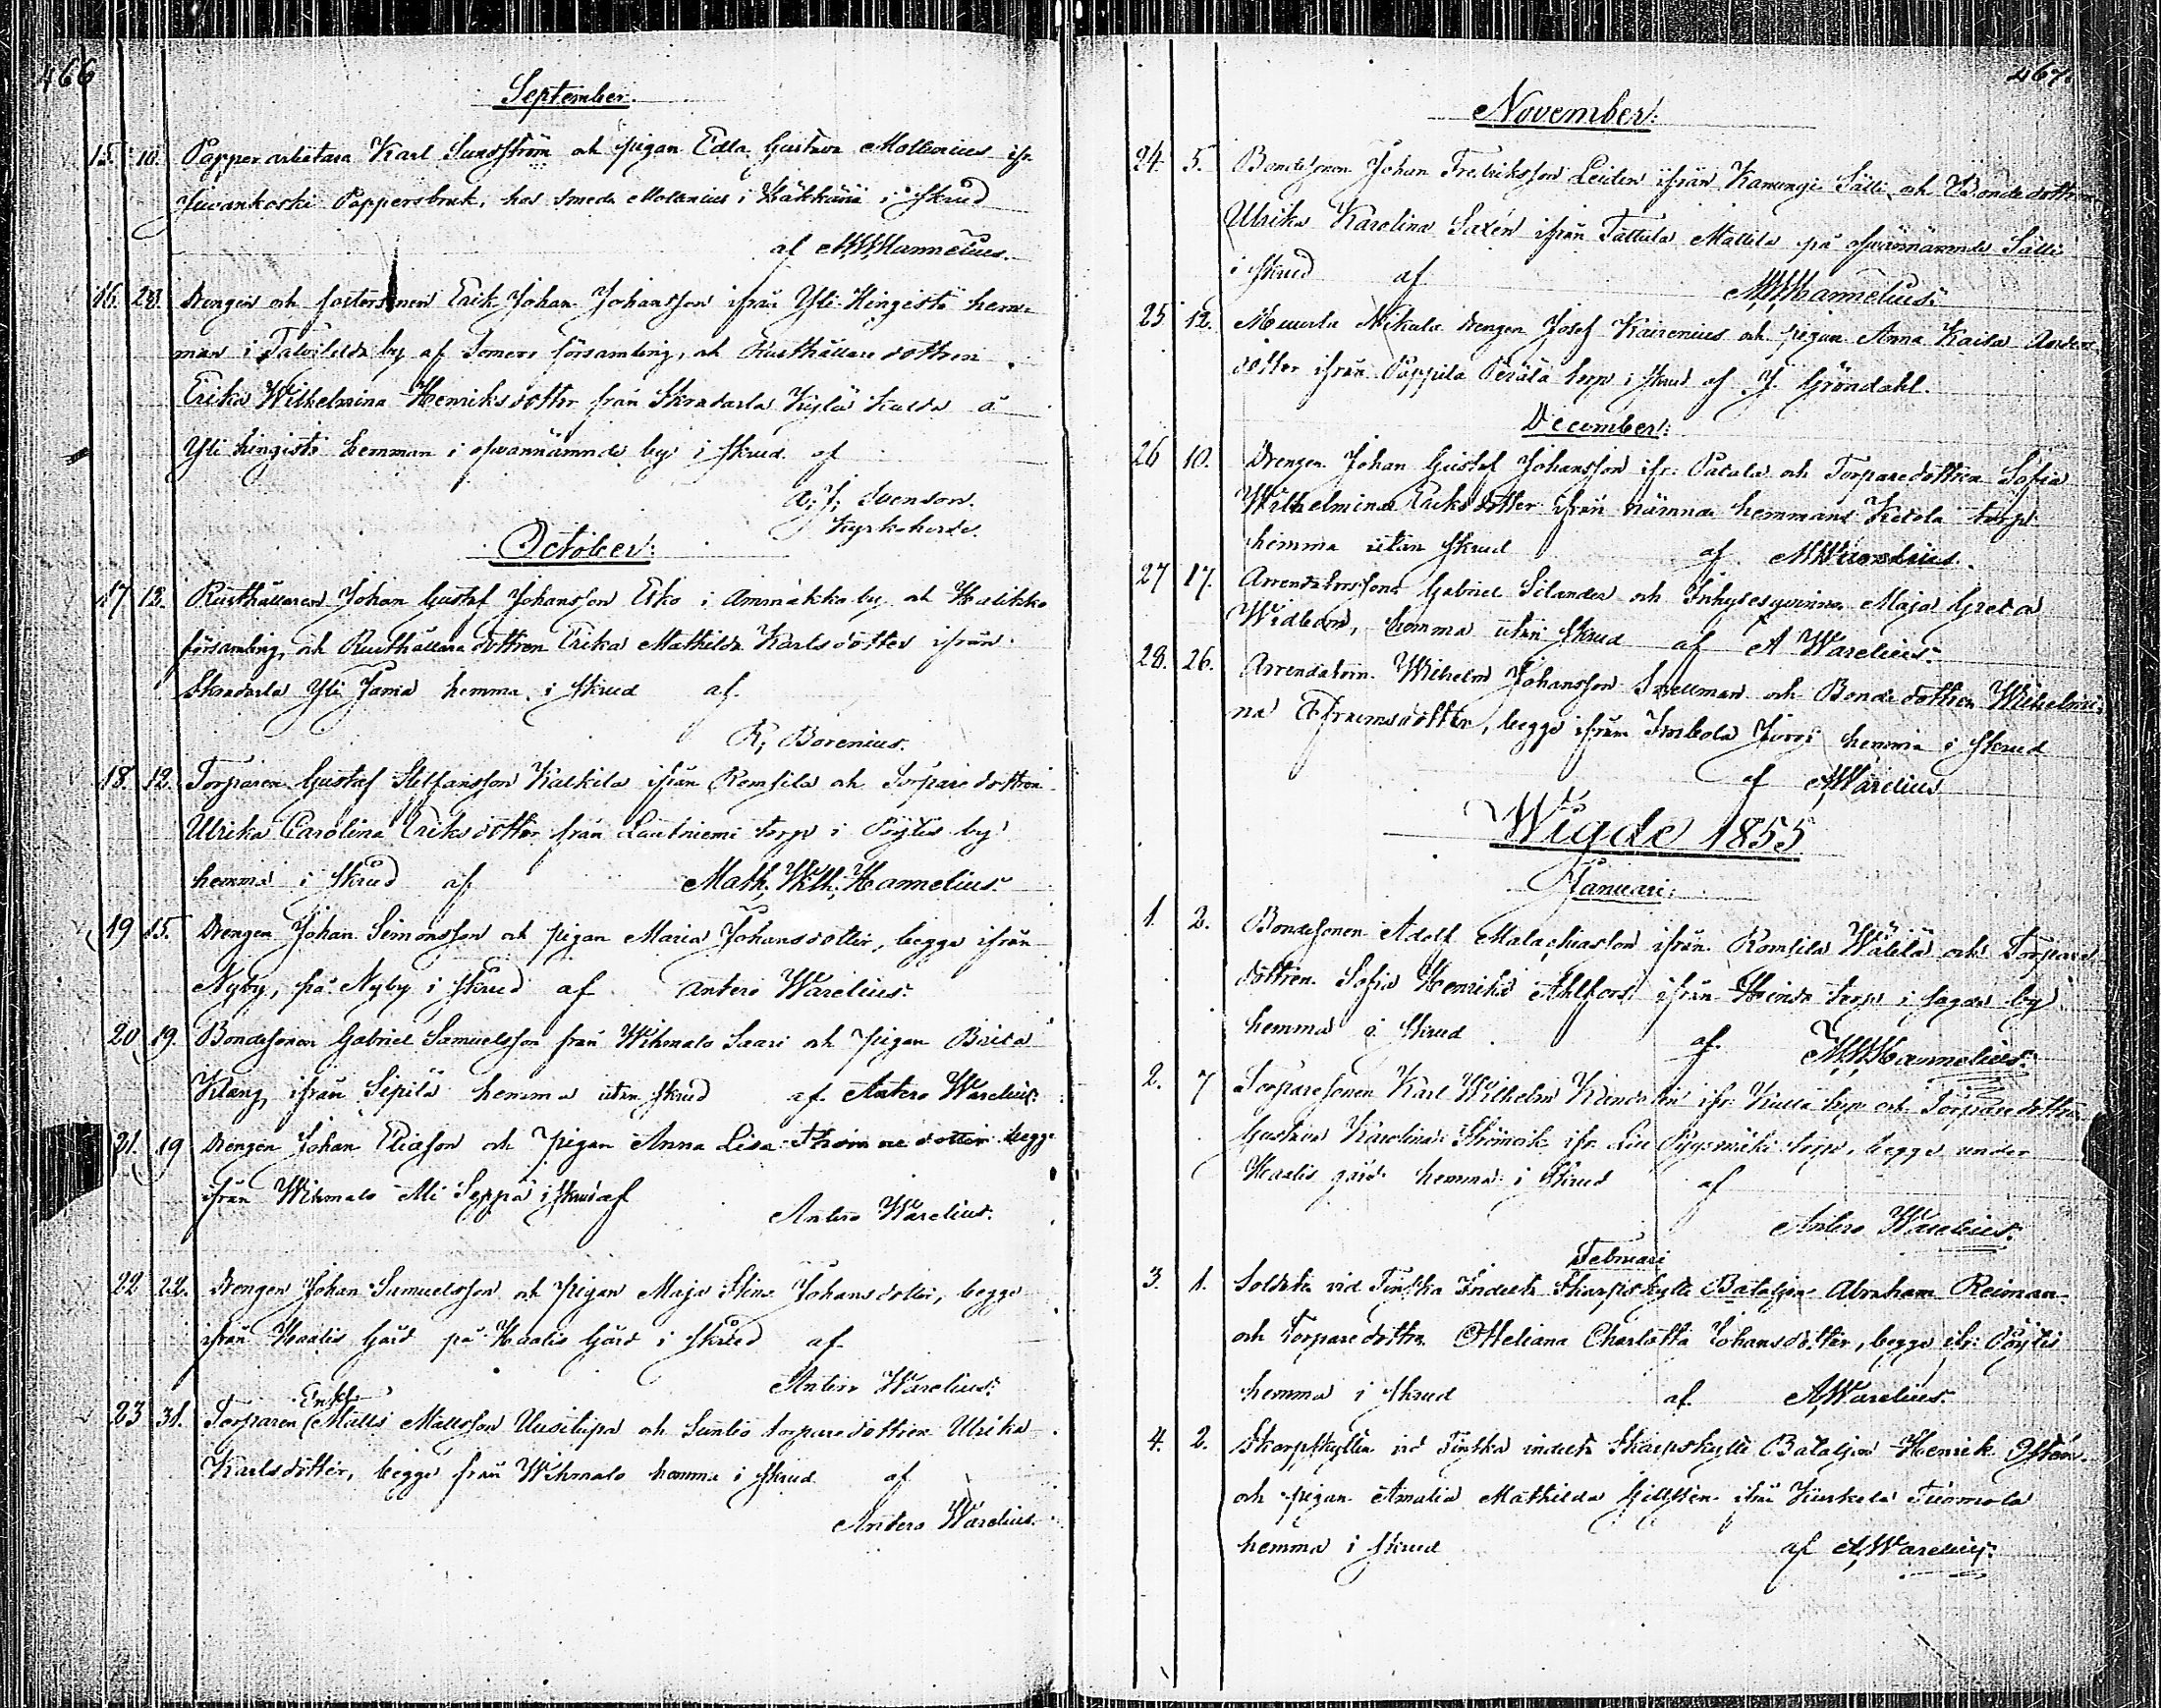 466
September.
15. 10. Papper arbetara Karl Sundström och pigan Edla Gustava Mollenius ifr
Juvankoski Pappersbruk, hos smeden Mollenius i i Skrud
af M.W. Hannelius.
16. 28. Drengen och fostersonen Erik Johan Johansson ifrån Yli Hingistö hem-
man i by af Somero församling, och Rusthållare dottren
Erika Wilhelmina Henriksdotter från Skradarla å
Yli hingistö hemman i ofvannämnde by i Skrud af
Svenson.
Kyrkoherde.
October:
17 12. Rusthållaren Johan Gustaf Johansson Esko i Ammäkko by och Halikko
församling, och Rusthållare dottren Erika Mathilda Karlsdotter ifrån
Skradarla Yli Jania hemma i Skrud af
R, Borenius.
18. 12. Torparen Gustaf Steffansson Kalkila ifrån Romsila och Torpare dottren
Ulrika Carolina Eriksdotter från Lautniemi torp i Pöytis by
hemma i Skrud af Math. Wilh. Hannelius.
19 15. Drengen Johan Simonsson och pigan Maria Johansdotter, begge ifrån
Nyby, på Nyby i Skrud af Antero Warelius.
20 19. Bondesonen Gabriel Samuelsson från Wihmalo Saari och Pigan Brita
Klang, ifrån Sipilä hemma utan Skrud af Antero Warelius
21. 19 Drengen Johan Eliasson och Pigan Anna Lisa Thomae dotter begge
ifrån Wihmalo Ali Seppä i Skrud af
Antero Warelius.
22 22. Drengen Johan Samuelsson och pigan Maja Stina Johansdotter, begge
ifrån Haalis Gård på Haalis Gård i Skrud af
Antero Warelius.
Enkl
23 31. Torparen Matts Mattsson Uusitupa och Suntio torpare dottren Ulrika
Karlsdotter, begge från Wihmalo hemma i Skrud af
Antero Warelius.
467.
November:
24. 5. Bondesonen Johan Fredriksson Leiden ifrån Kanungi Sälli och Bonde dottren
Ulrika Karolina Saxén ifrån Tattula Mattila på ofvannämnde Sälli
i Skrud af M.W. Hannelius.
25 12. Muurla Nikula drengen Josef Kairenius och pigan Anna Kaisa Anders
dotter ifrån Pappila Perälä torp i Skrud af J. Gröndahl.
December:
26 10. Drengen Johan Gustaf Johansson ifr. och Torparedottren Sofia
Wilhelmina Eriksdotter ifrån nämnde hemmans Ketola torp
hemma utan Skrud af A Warelius.
27 17. Arrendatorssonen Gabriel Silander och Inhysesqvinna Maja Greta
Widbom, hemma utan Skrud af A Warelius.
28. 26. Arrendatorn Wilhelm Johansson Snellman och Bonde dottren Wilhelmi-
na Efraimsdotter, begge ifrån Imbola Jurri hemma i Skrud
af A, Warelius
Wigde 1855
Januari:
1. 2. Bondesonen Adolf Malachiasson ifrån Romsila Wälilä och Torpare
dottren Sofia Henrika Ahlfors ifrån torp i by
hemma i Skrud af M.W. Hannelius.
2. 7 Torparesonen Karl Wilhelm ifr. torp och Torparedottren
Gustava Karolina ifr. torp, begge under
Haalis gård hemma i Skrud af
Antero Warelius.
Februari
3. 1. Soldaten vid Finska Indelta Skarpskytte Bataljon Abraham Reiman
och Torparedottren Otteliana Charlotta Johansdotter, begge ifr. Pöytis
hemma i Skrud af A, Warelius.
4. 2. Skarpskytten vid Finska indelta Skarpskytte Bataljon Henrik Östén
och pigan Amalia Mathilda ifrån Kuskela Tuomola
hemma i Skrud af A, Warelius.